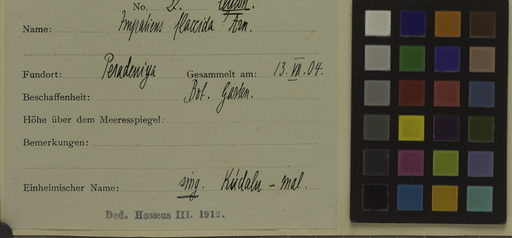 No. 2. Ceylon.
Name: Impatiens flaccida Arn.
Fundort: Peradeniya Gesammelt am: 13. VII. 04.
Beschaffenheit: Bot. Garten.
Höhe über dem Meeresspiegel:
Bemerkungen:
Einheimischer Name: sing. Kúdalu - mal.
Ded. Hosseus III. 1912.